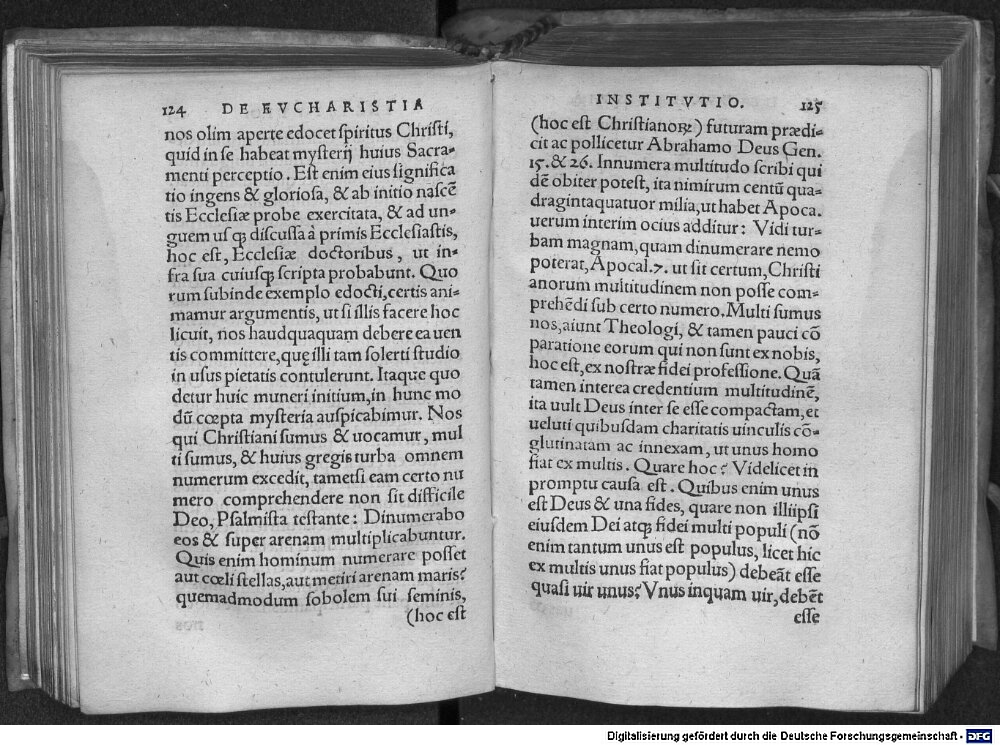 124 DE EVCHARISTIA
nos olim aperte edocet spiritus Christi,
quid in se habeat mysterij huius Sacra-
menti perceptio. Est enim eius significa
tio ingens & gloriosa, & ab initio nascē
tis Ecclesiæ probe exercitata, & ad un-
guem usq; discussa à primis Ecclesiastis,
hoc est, Ecclesiæ doctoribus, ut in-
fra sua cuiusq; scripta probabunt. Quo
rum subinde exemplo edocti, certis ani-
mamur argumentis, ut si illis facere hoc
licuit, nos haudquaquam debere ea uen
tis committere, quę illi tam solerti studio
in usus pietatis contulerunt. Itaque quo
detur huic muneri initium, in hunc mo
dū cœpta mysteria auspicabimur. Nos
qui Christiani sumus & uocamur, mul
ti sumus, & huius gregis turba omnem
numerum excedit, tametsi eam certo nu
mero comprehendere non sit difficile
Deo, Psalmista testante: Dinumerabo
eos & super arenam multiplicabuntur.
Quis enim hominum numerare posset
aut cœli stellas, aut metiri arenam maris?
quemadmodum sobolem sui seminis,
(hoc est
INSTITVTIO. 125
(hoc est Christianoꝝ) futuram prædi-
cit ac pollicetur Abrahamo Deus Gen.
15. & 26. Innumera multitudo scribi qui
dē obiter potest, ita nimirum centū qua-
dragintaquatuor milia, ut habet Apoca.
uerum interim ocius additur: Vidi tur-
bam magnam, quam dinumerare nemo
poterat, Apocal. 7. ut sit certum, Christi
anorum multitudinem non posse com-
prehēdi sub certo numero. Multi sumus
nos, aiunt Theologi, & tamen pauci cō
paratione eorum qui non sunt ex nobis,
hoc est, ex nostræ fidei professione. Quā
tamen interea credentium multitudinē,
ita uult Deus inter se esse compactam, et
ueluti quibusdam charitatis uinculis cō-
glutinatam ac innexam, ut unus homo
fiat ex multis. Quare hoc? Videlicet in
promptu causa est. Quibus enim unus
est Deus & una fides, quare non illi ipsi
eiusdem Dei atq; fidei multi populi (nō
enim tantum unus est populus, licet hic
ex multis unus fiat populus) debeāt esse
quasi uir unus? Vnus inquam uir, debēt
esse
Digitalisierung gefördert durch die Deutsche Forschungsgemeinschaft - DFG